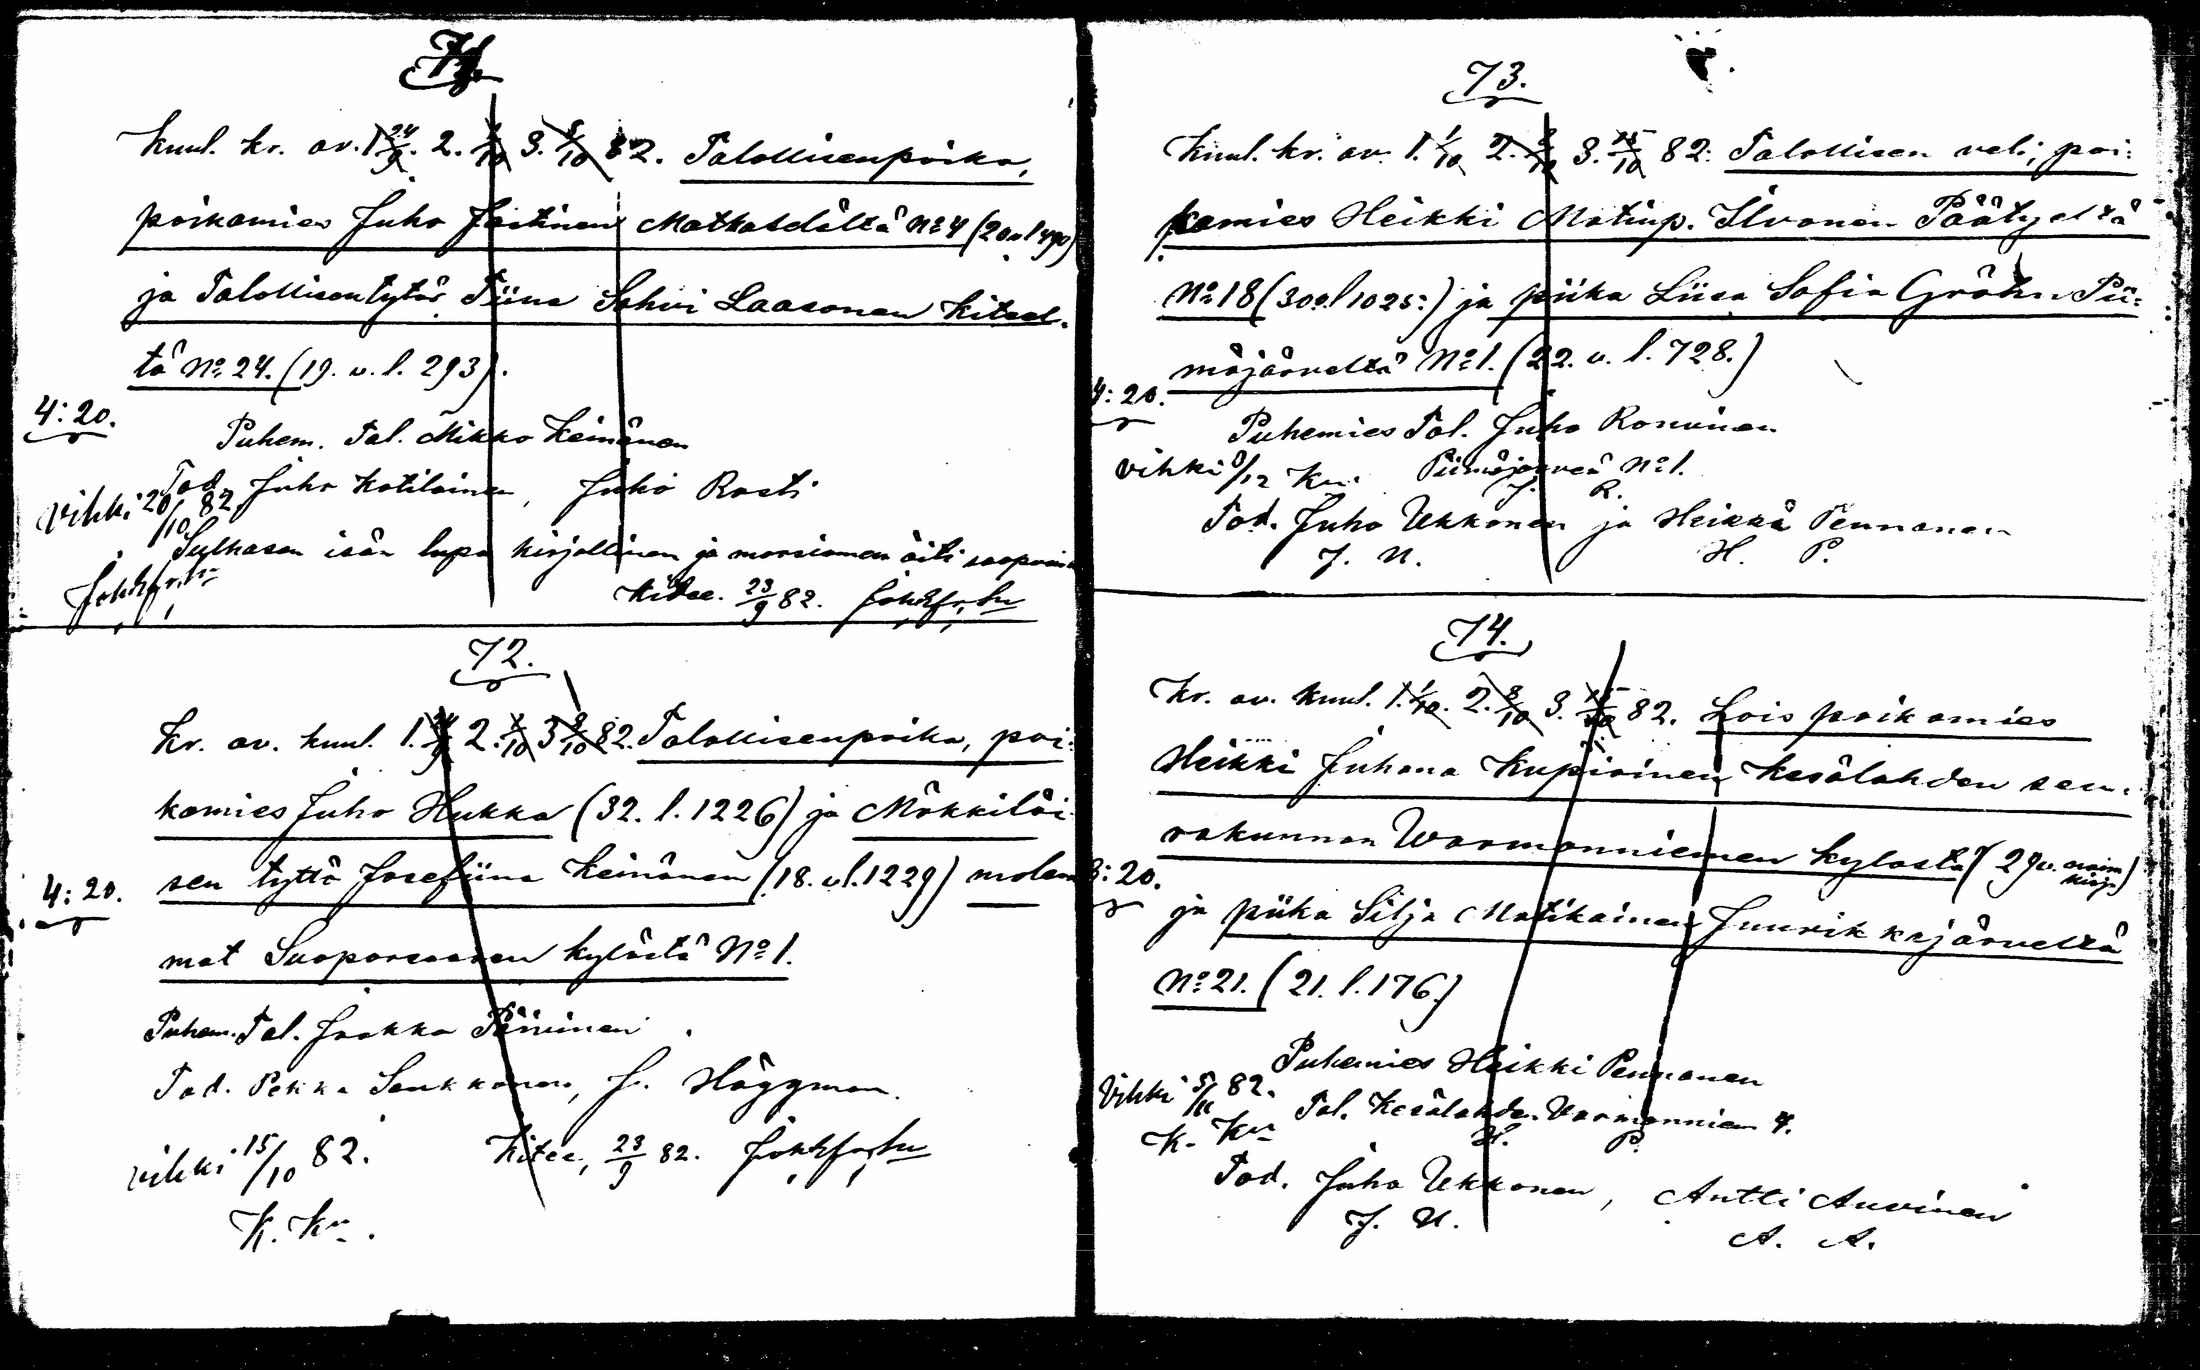 71.
Kuul. kr. av. 1 24/9. 2. 1/10 3. 8/10 82. Talollisenpoika,
poikamies Juho Matkaselältä No 4 (20 v l 490)
ja Talollisentytär Tiina Sohvi Laasonen Kiteel-
tä No 24. (19. v. l. 293).
4:20.
Puhem. Tal. Mikko Keinänen
Tod. Juho Kotilainen, Juho Rasti
Vihki 20/10 82
Sulhasen isän lupa kirjallinen ja morsiamen äiti saapuvi
Kitee. 23/9 82.
72.
Kr. av. kuul. 1. 24/9 2. 1/10 3 8/10 82. Talollisenpoika, poi-
kamies Juho Hukka (32. l. 1226) ja Mökkiläi-
4:20. sen tyttö Josefiina Keinänen (18. v l. 1229) molem
mat Suoporsaaren kylästä No 1.
Puhem. Tal. Jaakko Päivinen
Tod. Pekka Senkkonen, J. Häggman.
vihki 15/10 82. Kitee, 23/9 82.
K. Kn.
73.
Kuul. kr. av. 1. 1/10 2. 8/10 3. 15/10 82. Talollisen veli, poi-
kamies Heikki Matinp. Ilvonen Päätyeltä
No 18 (30 v. l 1025.) ja piika Liisa Sofia Gröhn Pii-
mäjärveltä No 1. (22. v. l. 728.)
4:20.
Puhemies Tal. Juho Ronninen
vihki 8/12 Kn. Piimäjarveä No 1.
J. R.
Tod. Juho Ukkonen ja Heikki Pennanen
J. U. H. P.
74.
Kr. av. kuul. 1. 1/10. 2. 8/10 3. 15/10 82. Lois poikamies
Heikki Juhana Kupiainen Kesälahden seu-
rakunnan Warmonniemen kylästä (29 v. esim kirja)
3:20.
ja piika Silja Matikainen Juurikkajärveltä
No 21. (21. l. 176.)
Puhemies Heikki Pennanen
Vihki 5/11 82. Tal. Kesälahden Varmonniem 4.
K. Kn H. P.
Tod. Juho Ukkonen, Antti Auvinen
J. U. A. A.